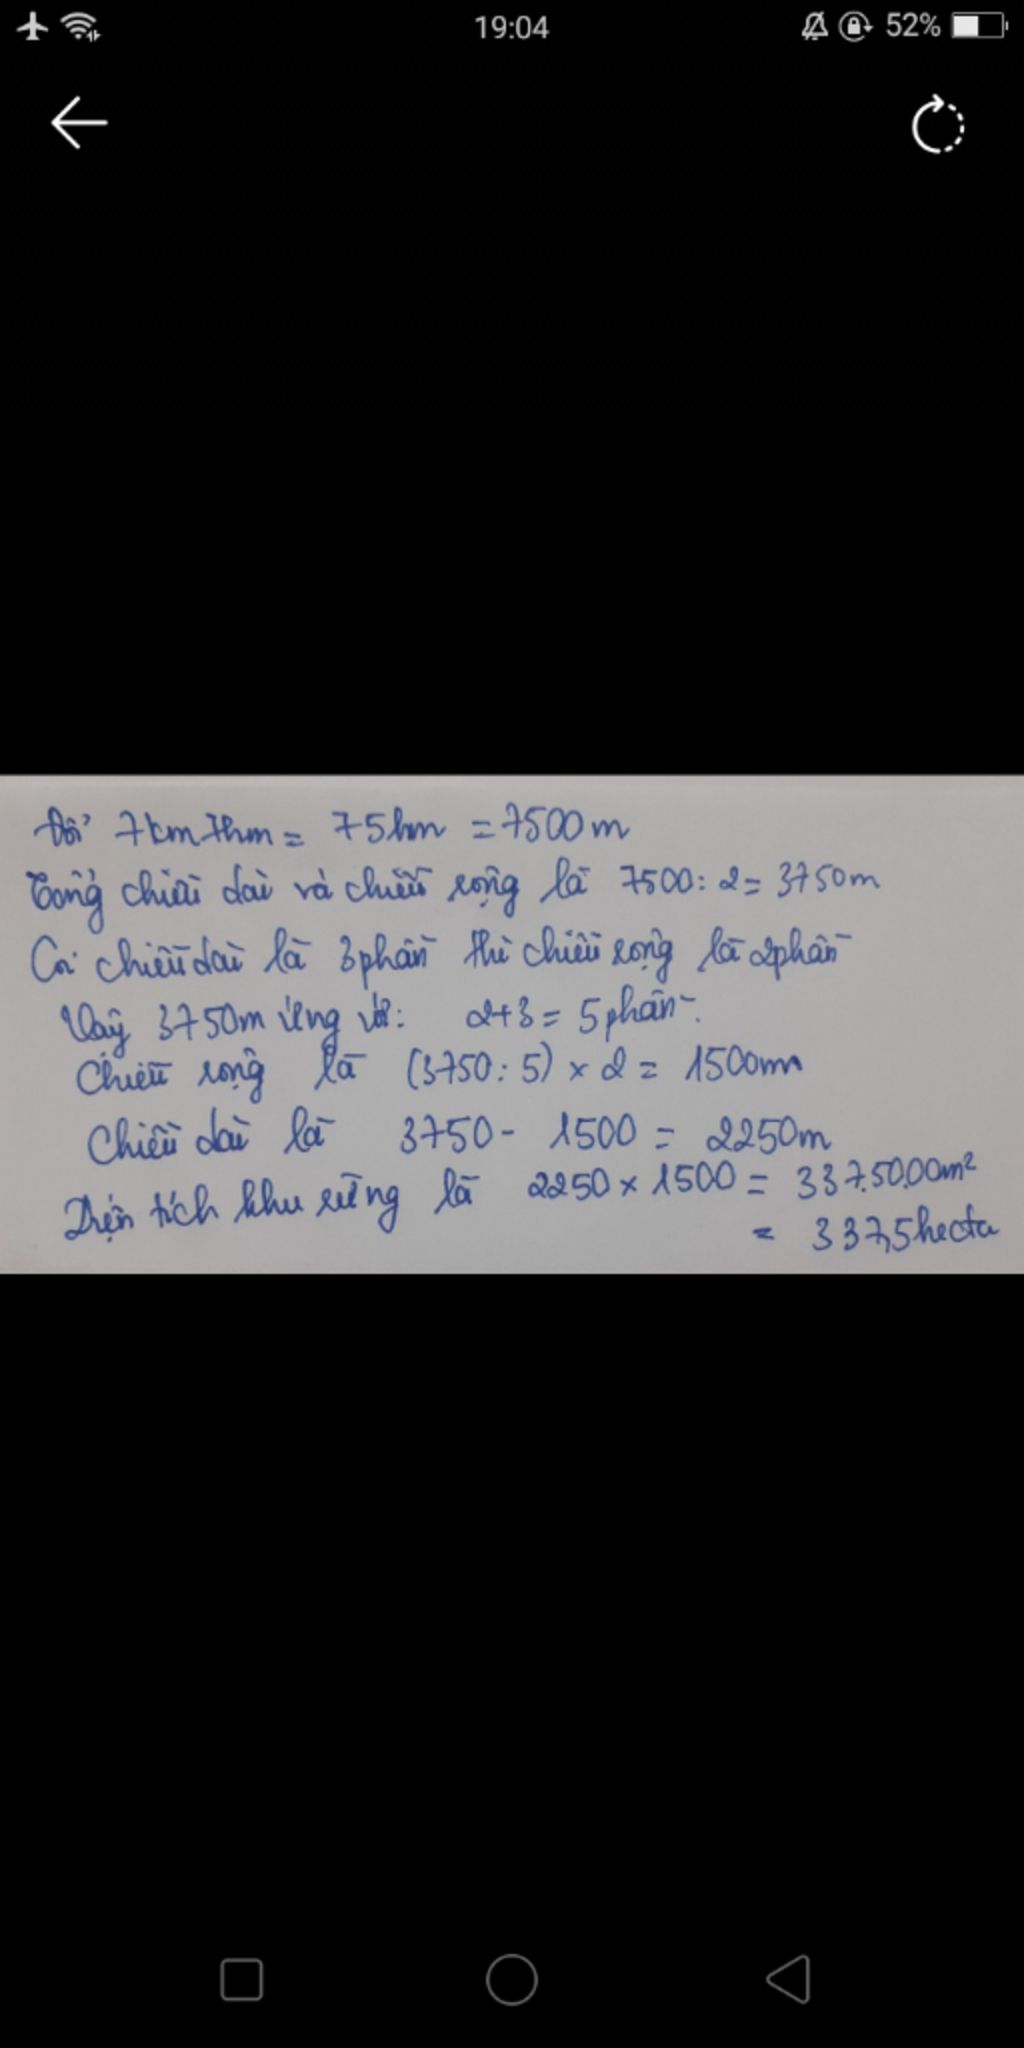 19:04
52%
Đổi 7km 7hm = 75hm = 7500m
Tổng chiều dài và chiều rộng là 7500 : 2 = 3750m
Coi chiều dài là 3 phần thì chiều rộng là 2 phần
Vậy 3750m ứng với: 2+3 = 5 phần.
Chiều rộng là (3750 : 5) x 2 = 1500m
Chiều dài là 3750 - 1500 = 2250m
Diện tích khu rừng là 2250 x 1500 = 337.50.00m²
= 337,5 hecta